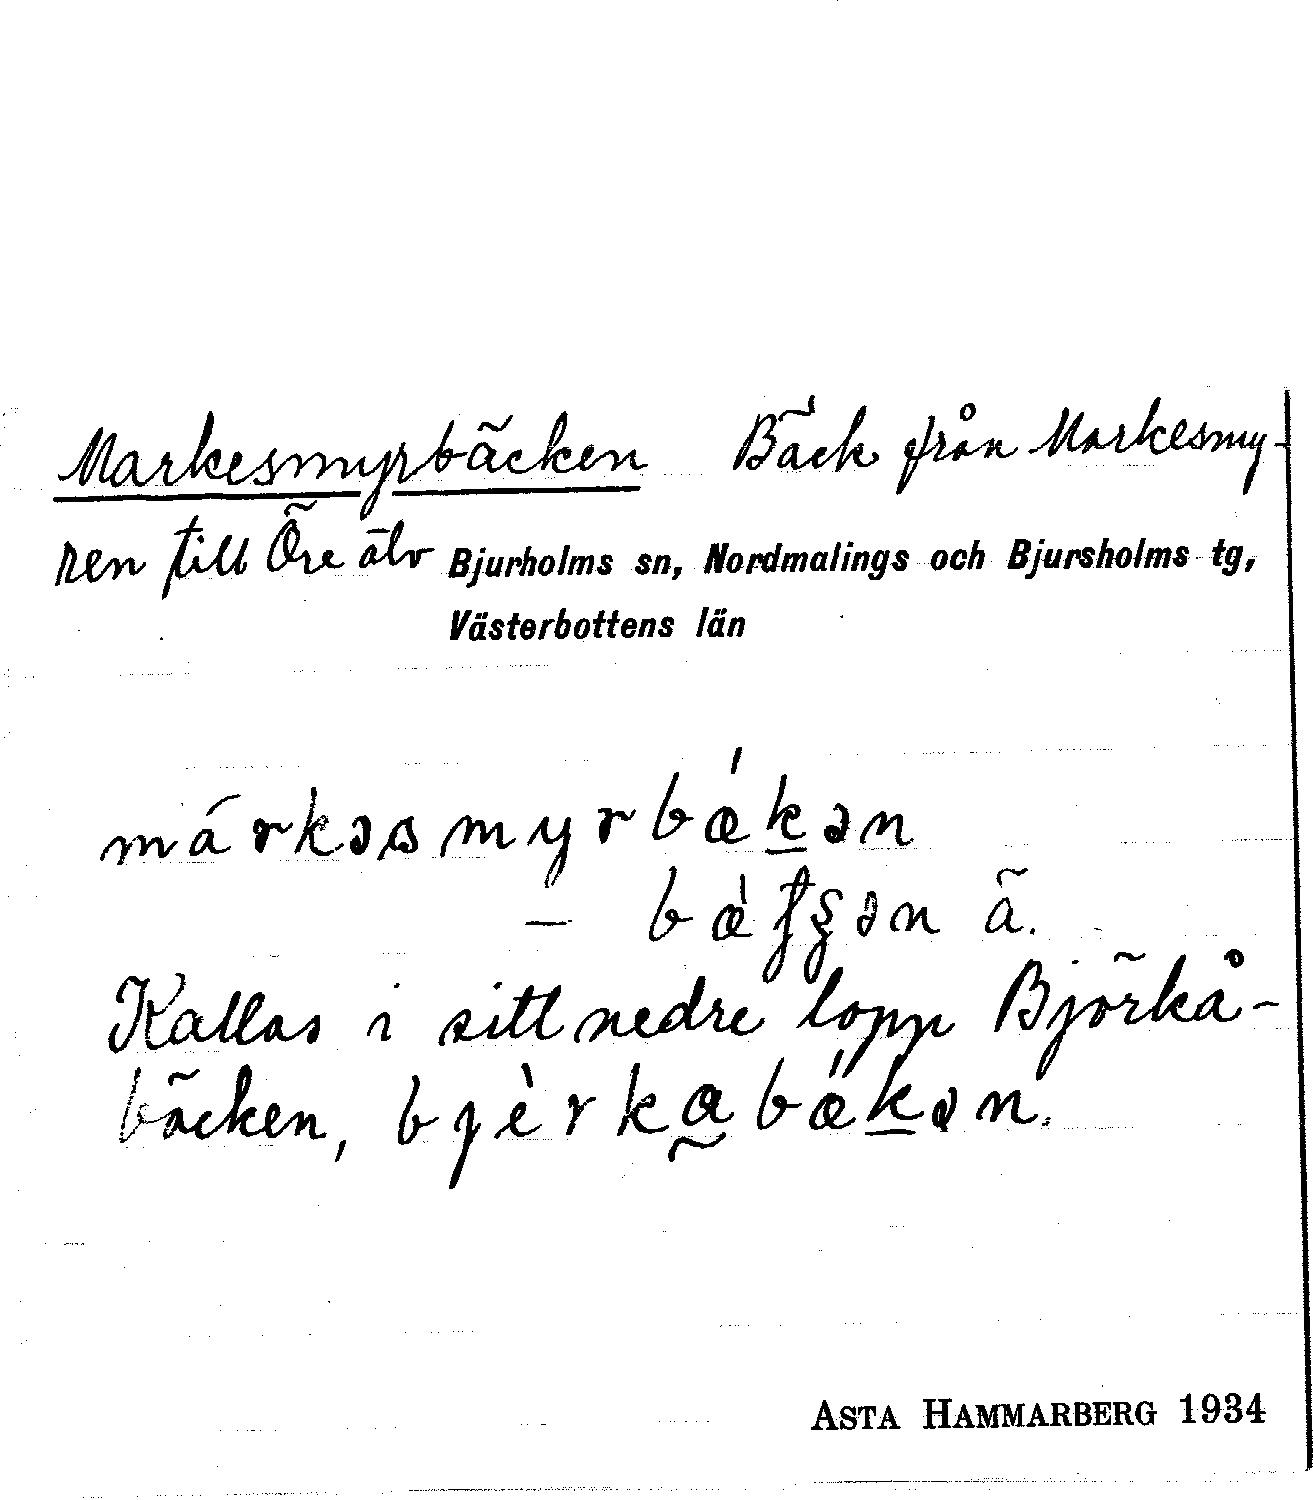 Markesmyrbäcken Bäck från Markesmy-
ren till Öre älv Bjurholms sn, Nordmalings och Bjursholms tg,
Västerbottens län
márkəsmyrbǽk̲ən
– bæ̀ʄʂən ä.
Kallas i sitt nedre lopp Björkå-
bäcken, bjèrka̰bǽk̲ən.
ASTA HAMMARBERG 1934